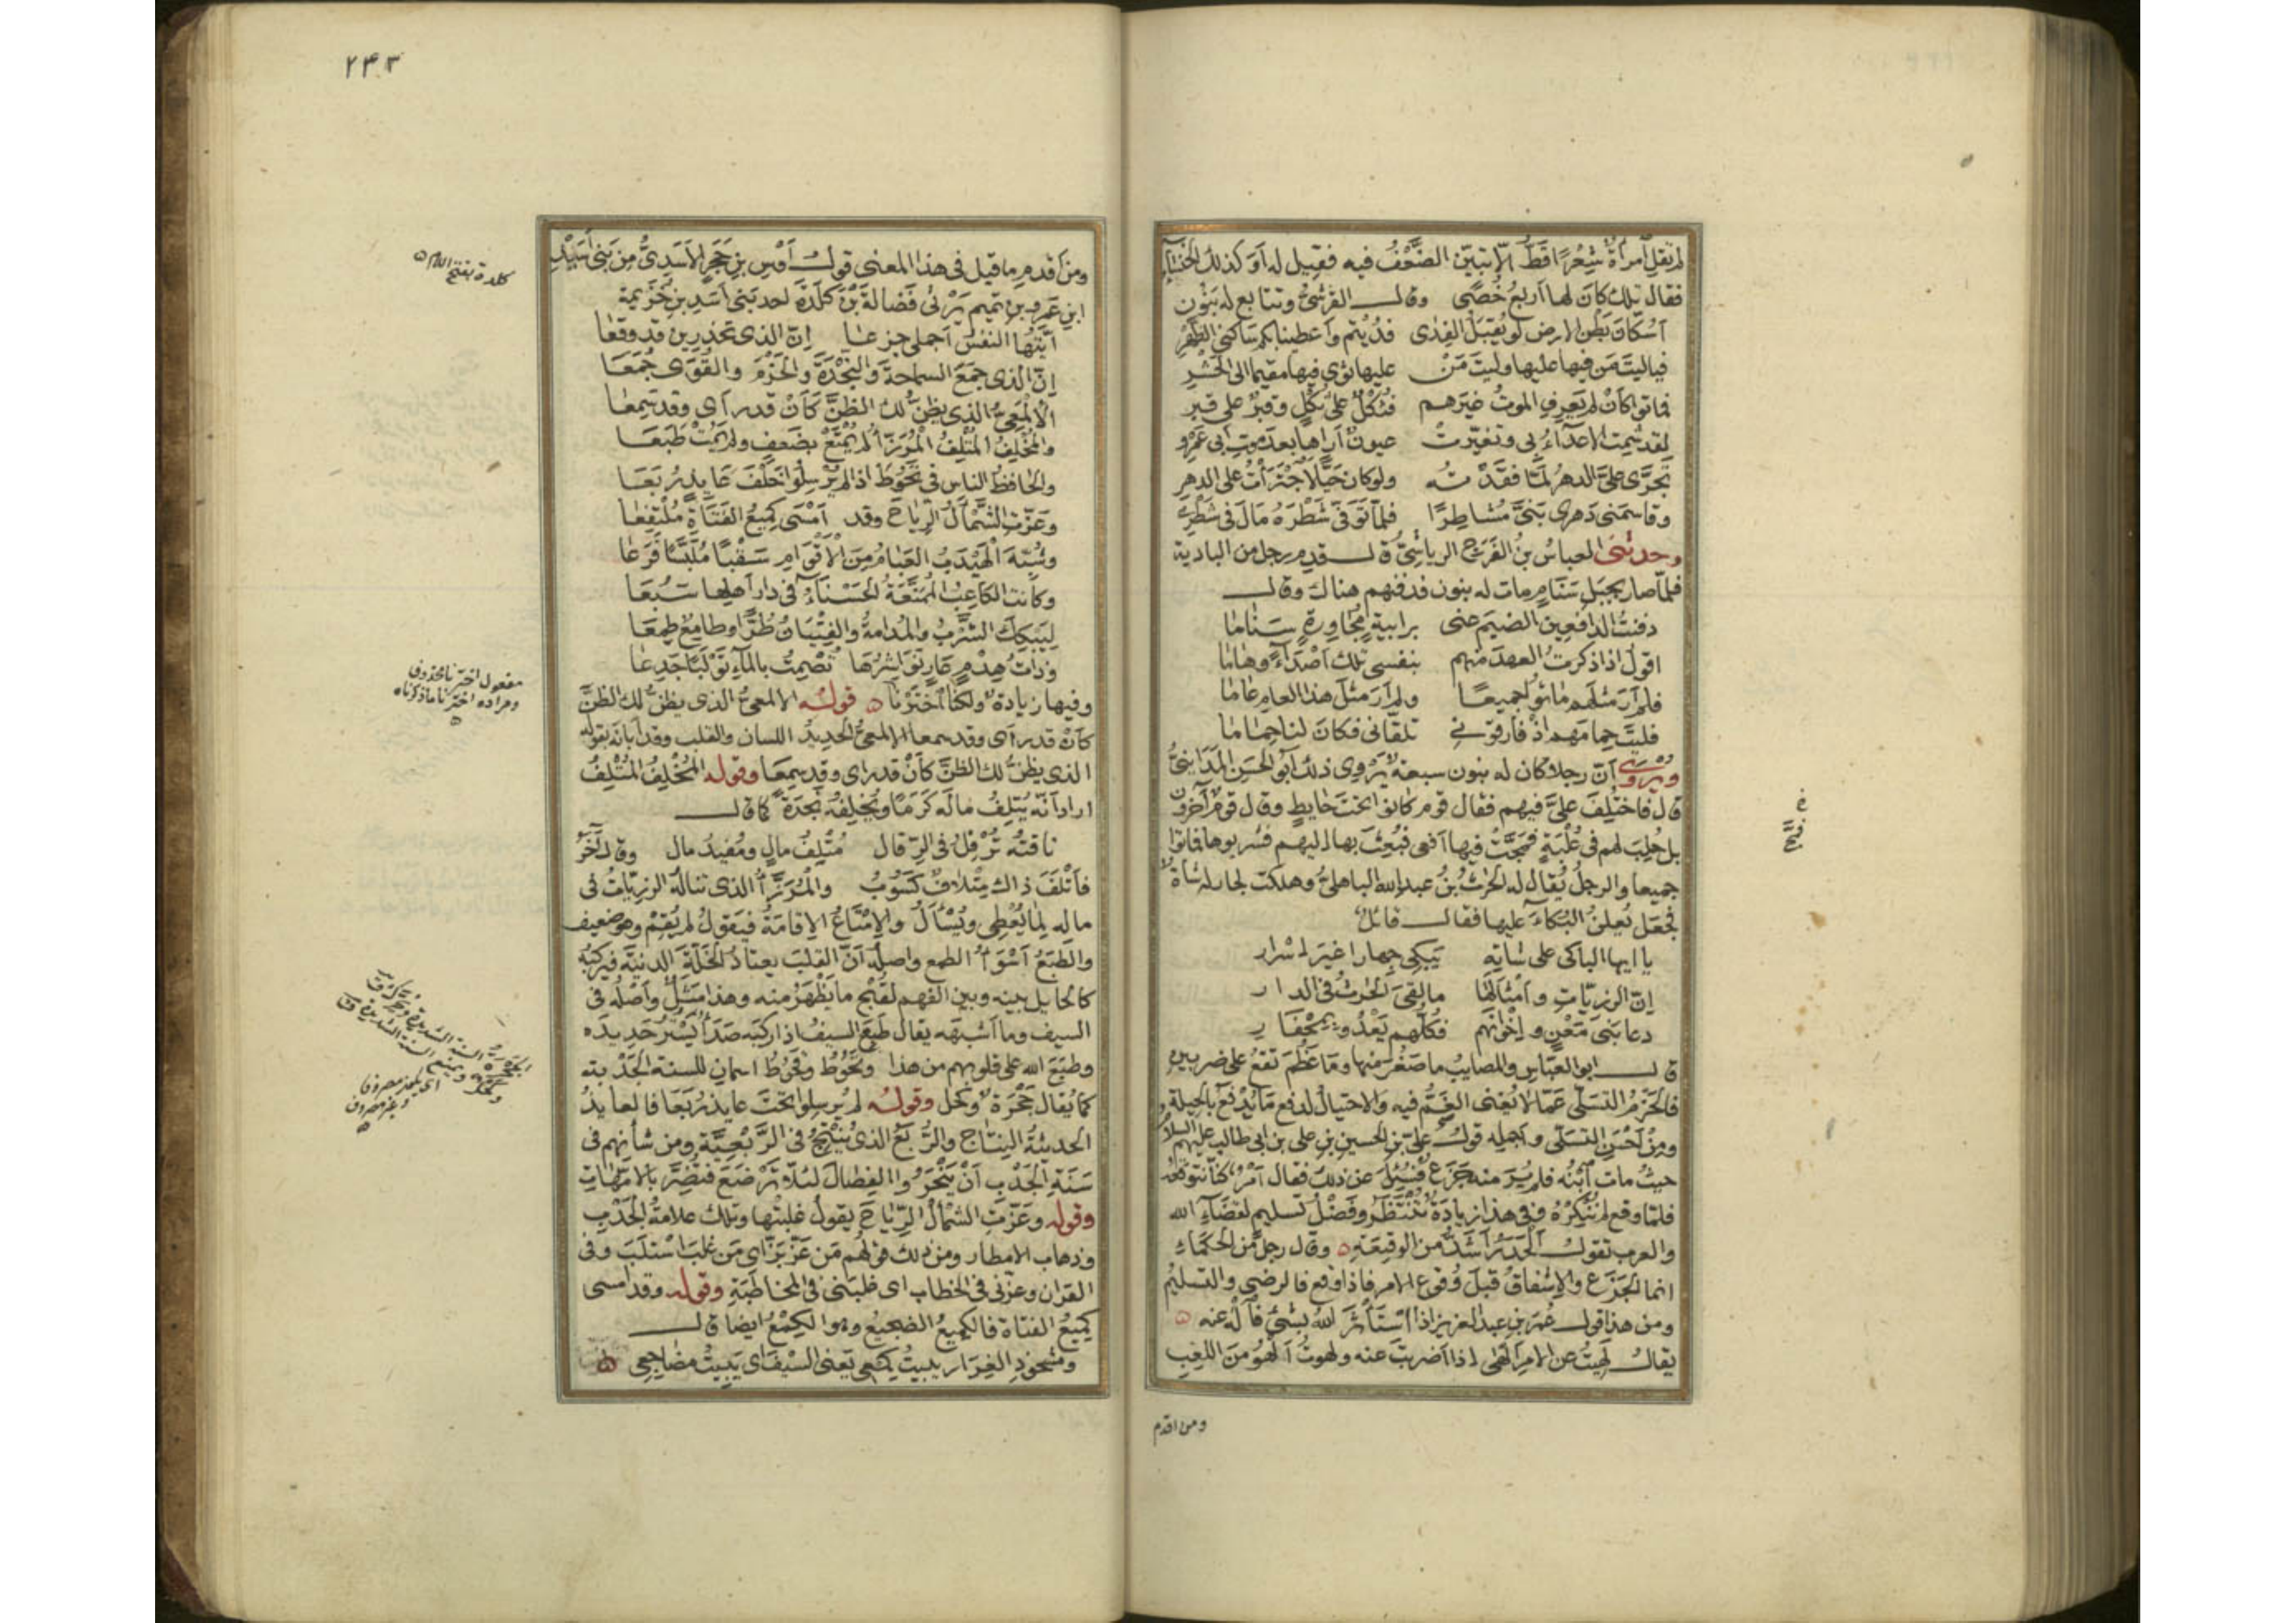 لم تقل امرأةٌ شِعْرًا قَطُّ الّا تبيّن الضَّعْفُ فيه فقيل له أوَ كذلك الخنساء
فقال تلك كان لها اربعُ خُصًى وقال القرشىُّ وتتابع له بَنُون
أسُكّانَ بَطْنِ الارضِ لو يُقبَلُ الفِدى فُدِيتم وأعطينا بكم ساكنِي الظَهْرِ
فياليتَ مَن فيها عليها وليتَ مَنْ عليها ثوى فيها مقيما الى الحَشْرِ
فماتوا كأنْ لم يَعرِفِ الموتُ غيرَهم فثُكْلٌ على ثُكْلٍ وقبرٌ على قبرِ
لقد شمِت الاعداءُ بى وتغيّرتْ عيونٌ أراها بعد موت أبى عَمْرِو
تَجرَّى علىَّ الدهرُ لمّا فقَدْتُه ولو كان حيًّا لَاجْترَأتُ على الدهرِ
وقاسمَنى دَهرى بَنىَّ مُشاطِرًا فلمّا تَوَفّى شَطْرَهُ مال فى شَطْرِى
وحدثنى العباسُ بنُ الفَرَج الرياشىُّ قال قدم رجل من البادية
فلمّا صار بجبَلِ سَنَامٍ مات له بنون فدفنهم هناك وقال
دفنتُ الدافعِين الضيمَ عنى برابيةٍ مُجاورةٍ سَنَاما
اقول اذا ذكرتُ العهدَ منهم بنفسى تلك أصْداءً وهاما
فلم أرَ مثلَهم ماتوا جميعًا ولم أرَ مثلَ هذا العامِ عاما
فليتَ حِمامَهم اذْ فارقونى تلقّانى فكان لنا حِماما
ويُرْوَى أنّ رجلا كان له بنون سبعة يَرْوِى ذلك أبو الحسن المَدَاينىُّ
قال فاختُلِفَ علىَّ فيهم فقال قوم كانوا تحتَ حايطٍ وقال قومٌ آخرون
بل حُلِبَ لهم فى عُلْبَةٍ فمَجَّتْ فيها أفعى فبُعِثَ بها اليهم فشربوها فماتوا
جميعا والرجلُ يُقال له الحرث بنُ عبد الله الباهلىُّ وهلكت لجار له شاةٌ
فجعَل يُعلِنُ البُكاءَ عليها فقال قائلٌ
يا ايها الباكى على شاتِهِ يَبكِى جِهارا غيرَ إسْرارِ
إنّ الرزيّاتِ وأمثالَها ما لقىَ الحرثُ فى الدارِ
دعا بَنى مَعْنٍ وإخوانَهم فكلّهم يَعْدُو بِمِحْفَارِ
قال ابو العبّاس والمصايبُ ما صغُر منها وما عَظُم تقعُ على ضربين
فالحَزْمُ التسلّى عمّا لا يُغنى الغَمُّ فيه والاحتيالُ لدفع ما يُدْفَع بالحيلة و
ومن أحْسَنِ التسلّى واجمله قولُ علىّ بن الحسين بن على بن ابى طالب عليهم السلام
حيثُ مات ابْنُه فلم يُرَ منه جَزَعٌ فسُئِل عن ذلك فقال أمْرٌ كنّا نتوقّعه
فلمّا وقع لم نُنْكِرْهُ وفى هذا زيادةٌ تُنْتَظَرُ وفَضْلُ تسليمٍ لقضاء الله
والعرب تقول الحذَرُ أشَدُّ من الوقيعة وقال رجل من الحكماء
انما الجَزَع والإشفاقُ قبلَ وُقوع الامر فاذا وقع فالرضى والتسليمُ
ومن هذا قول عُمَر بن عبد العزيز اذا اسْتَأثَرَ الله بشىءٍ فالْهَ عنه
يقال لَهِيتُ عن الامر ألْهَى اذا اضربتُ عنه ولهوتُ ألهُو من اللعب
ومن اقدم
قبح
٢٤٣
ومن أقدم ما قيل فى هذا المعنى قول أوْسِ بن حَجَرٍ الأسَيْدىُّ من بَنى أُسَيِّد
ابن عَمْرو بن تميم يَرْثى فَضالةَ بْنَ كَلَدَةَ احد بَنى أسَد بن خُزَيمة
أيّتُها النفسُ أجملى جزعا إنّ الذى تحذرين قد وقعا
إنّ الذى جَمَعَ السماحةَ والنَجْدةَ والحَزْمَ والقُوَى جُمَعَا
الألْمَعِىُّ الذى يظنّ لك الظنَّ كأنْ قد رأى وقد سَمِعا
والمُخْلِفُ المُتْلِفُ المُرَزَّأُ لم يُمْتَعْ بضَعفٍ ولم يَمُتْ طَبَعَا
والحافظُ الناسِ فى تَحُوطَ اذا لم يُرْسِلُوا خَلْفَ عَايِذٍ رُبَعَا
وعَزّتِ الشَّمْألُ الرياحَ وقد أمْسَى كَمِيعُ الفَتَاةِ مُلتَفِعا
وشُبّهَ الهَيْدَبُ العَبَامُ مِنَ الأقْوَامِ سَقْبًا مُلَبَّسًا فَرَعَا
وكانت الكاعِبُ المُمَنَّعَةُ الحَسْنَاءُ فى دار أهلها سَبُعَا
لِيَبْكِكَ الشَّرْبُ والمُدامةُ والفِتْيَانُ طُرًّا وطامِعٌ طمِعَا
وذاتُ هِدْمٍ عَارٍ نَوَاشِرُهَا تُصْمِتُ بالماءِ تَوْلَبًا جَدِعَا
وفيها زيادة ولكنّا اختَرْنا قوله الالمعىُّ الذى يظن لك الظنّ
كأنْ قد رأى وقد سمعا الالمعىُّ الحديدُ اللسان والقلب وقد أبانَه بقوله
الذى يظنّ لك الظنَّ كأنْ قد راى وقد سَمِعَا وقوله المُخْلِفُ المُتْلِفُ
اراد انّه يُتلِفُ مالَه كَرَمًا ويُخْلِفُه نَجْدَةً كما قال
ناقتُه تُرْقِلُ فى الرِقال مُتْلِفُ مالٍ ومُفيدُ مال وقال آخَرُ
فأتْلَفَ ذاك مِتْلافٌ كَسُوبُ والمُرَزَّأُ الذى تناله الرزيّاتُ فى
ماله لِما يُعْطِى ويُسْأَل والإمْتَاعُ الاقامةُ فيَقولُ لم يُقِمْ وهو ضعيف
والطَبَعُ أسْوَأُ الطمع واصلُه أنّ القلبَ يعتادُ الخَلّةَ الدنيّة فيركبُه
كالحايل بينه وبين الفهم لقُبْحِ ما يَظْهَرُ منه وهذا مثَلٌ وأصْلُه فى
السيف وما اشبهه يقال طَبِعَ السيفُ اذا ركبَه صَدَأٌ يَسْتُر حَديدَه
وطَبَعَ الله على قلوبهم من هذا وتَحُوطُ وقَحُوطُ اسمانِ للسنة الجَدْبة
كما يُقال جَحْرة وكَحْل وقوله لم يُرسِلوا تحت عايذٍ رُبَعَا فالعايذُ
الحديثةُ النِتَاج والرُّبَعُ الذى يُنْتَجُ فى الرِّبْعيّة ومن شأنهم فى
سَنَةِ الجَدْب أنْ يَنْحَرُوا الفِصَالَ لئلّا تَرْضَعَ فتُضِرَّ بالامّهاتِ
وقوله وعَزّتِ الشَمْألُ الرياحَ يقول غلبتْها وتلك علامةُ الجَدْب
وذهاب الامطار ومن ذلك قولُهم مَن عَزّ بَزّ اى مَن غلَبَ اسْتلَبَ وفى
القران وعزّنى فى الخطاب اى غلبَنى فى المخاطبةِ وقوله وقد امسى
كميعُ الفتاة فالكميعُ الضجيعُ وهو الكِمْعُ ايضا قال
ومشحوذِ الغِرَار يبيتُ كِمْعِى يَعنى السيفَ اى يَبِيتُ مضاجِعى
كلدة بفتح اللام
مفعول اخترنا محذوف
ومراده اخترنا ما ذكرناه